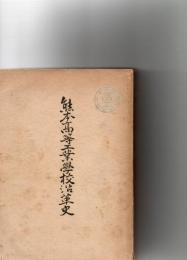 熊本髙等工業學校沿革史